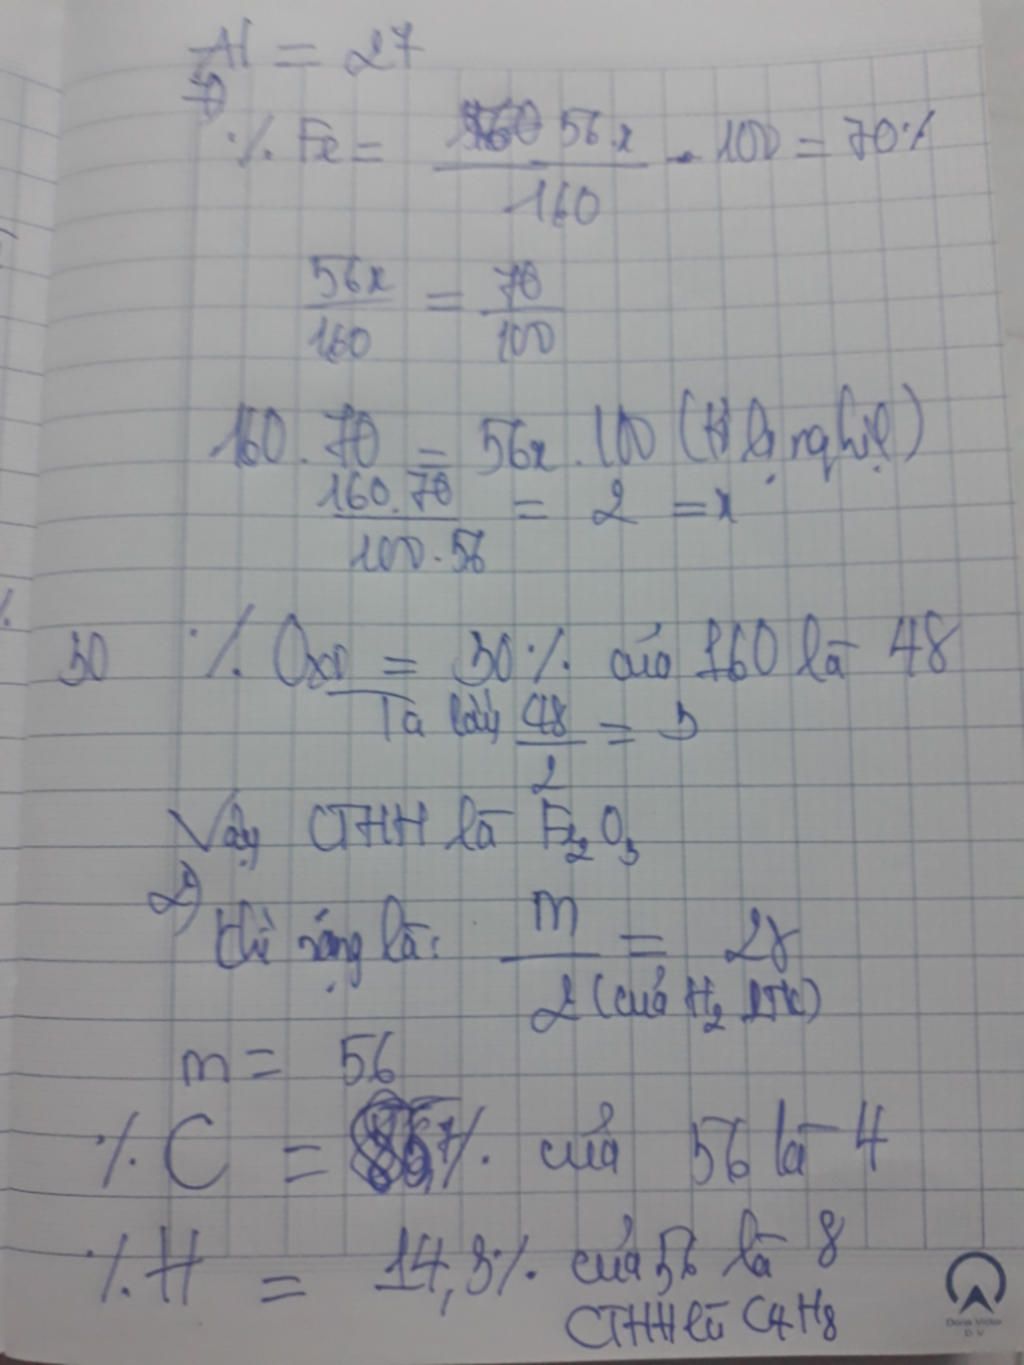 Al = 27
1)
% Fe = 56x / 160 . 100 = 70%
56x / 160 = 70 / 100
160.70 = 56x.100
160.70 / 100.56 = 2 = x
30 % Oxo = 30% của 160 là 48
Ta lấy 48 / 2 = 3
Vậy CTHH là Fe2O3
2)
khí nặng là: m / 2 (của H2 = 28
m = 56
% C = % của 56 là 4
% H = 14,3% của 56 là 8
CTHH là C4H8
Dang Victor
D.V